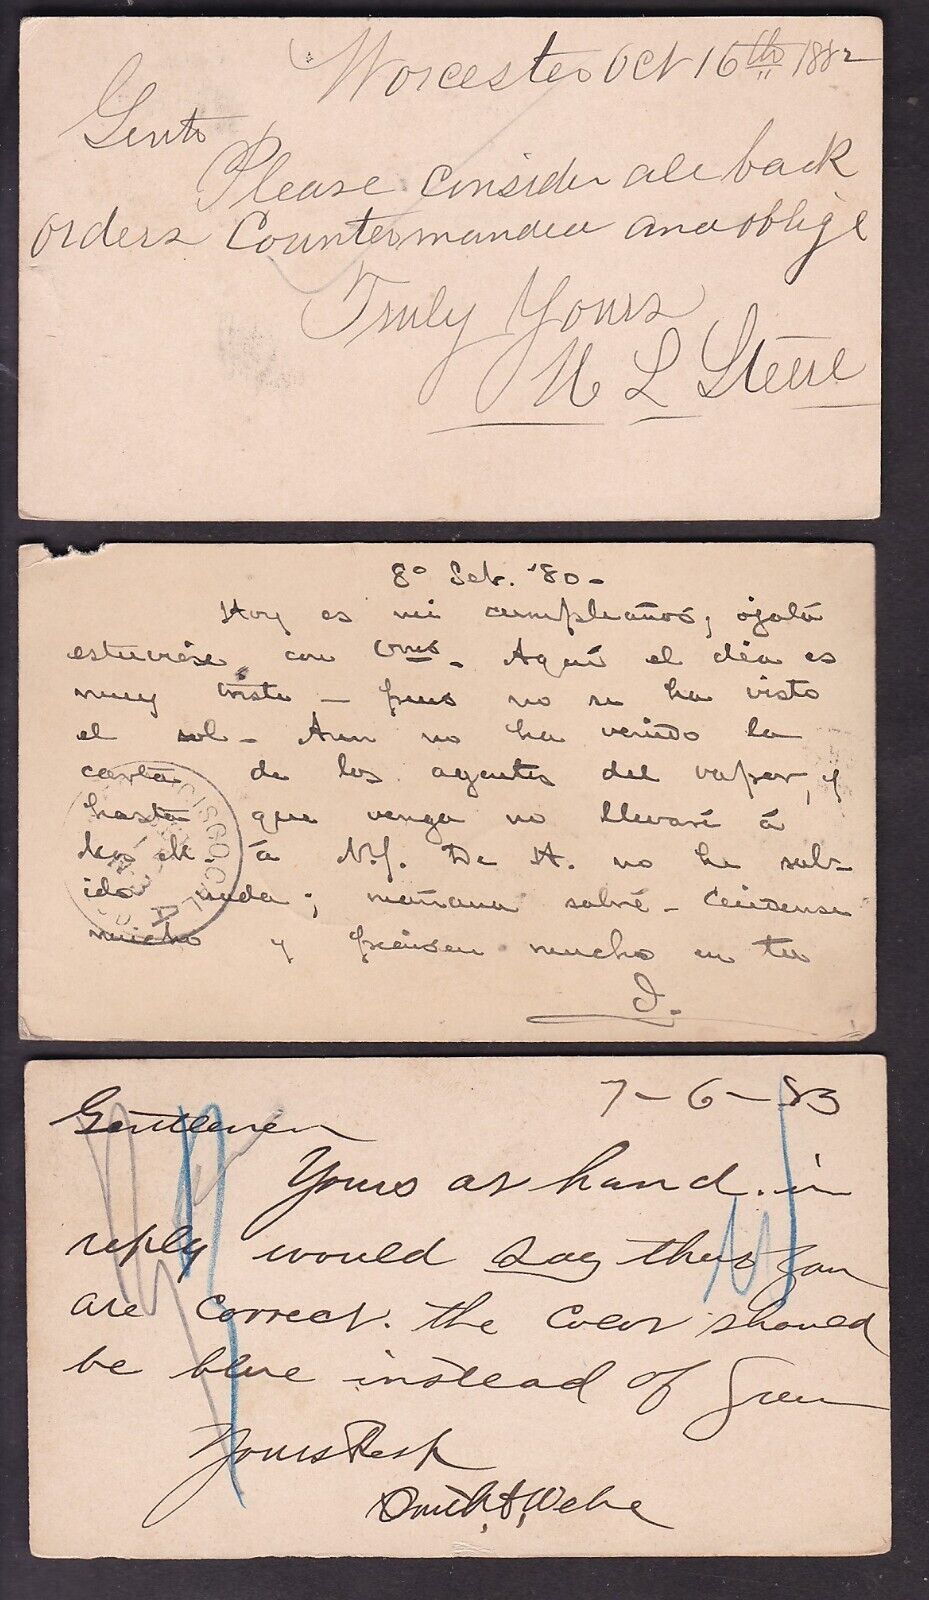 Worcester Oct 16th 1882
Gents
Please consider all back
orders Countermanded and oblige
Truly Yours
L Steere
8° Set. '80-
Hoy es mi cumpleaños, ojalá
estuviese con Ums. Aquí el día es
muy triste - pues no se ha visto
el sol - Aun no ha venido la
carta de los agentes del vapor, y
hasta que venga no llevaré á
á N.J. De A. no he sab-
ido nada; mañana sabré - Cuidense
mucho y piensen mucho en tu
J.
CISCO, CAL
7-6-83
Gentlemen
Yours at hand. in
reply would say that you
are correct. the color should
be blue instead of Green
Yours Resp